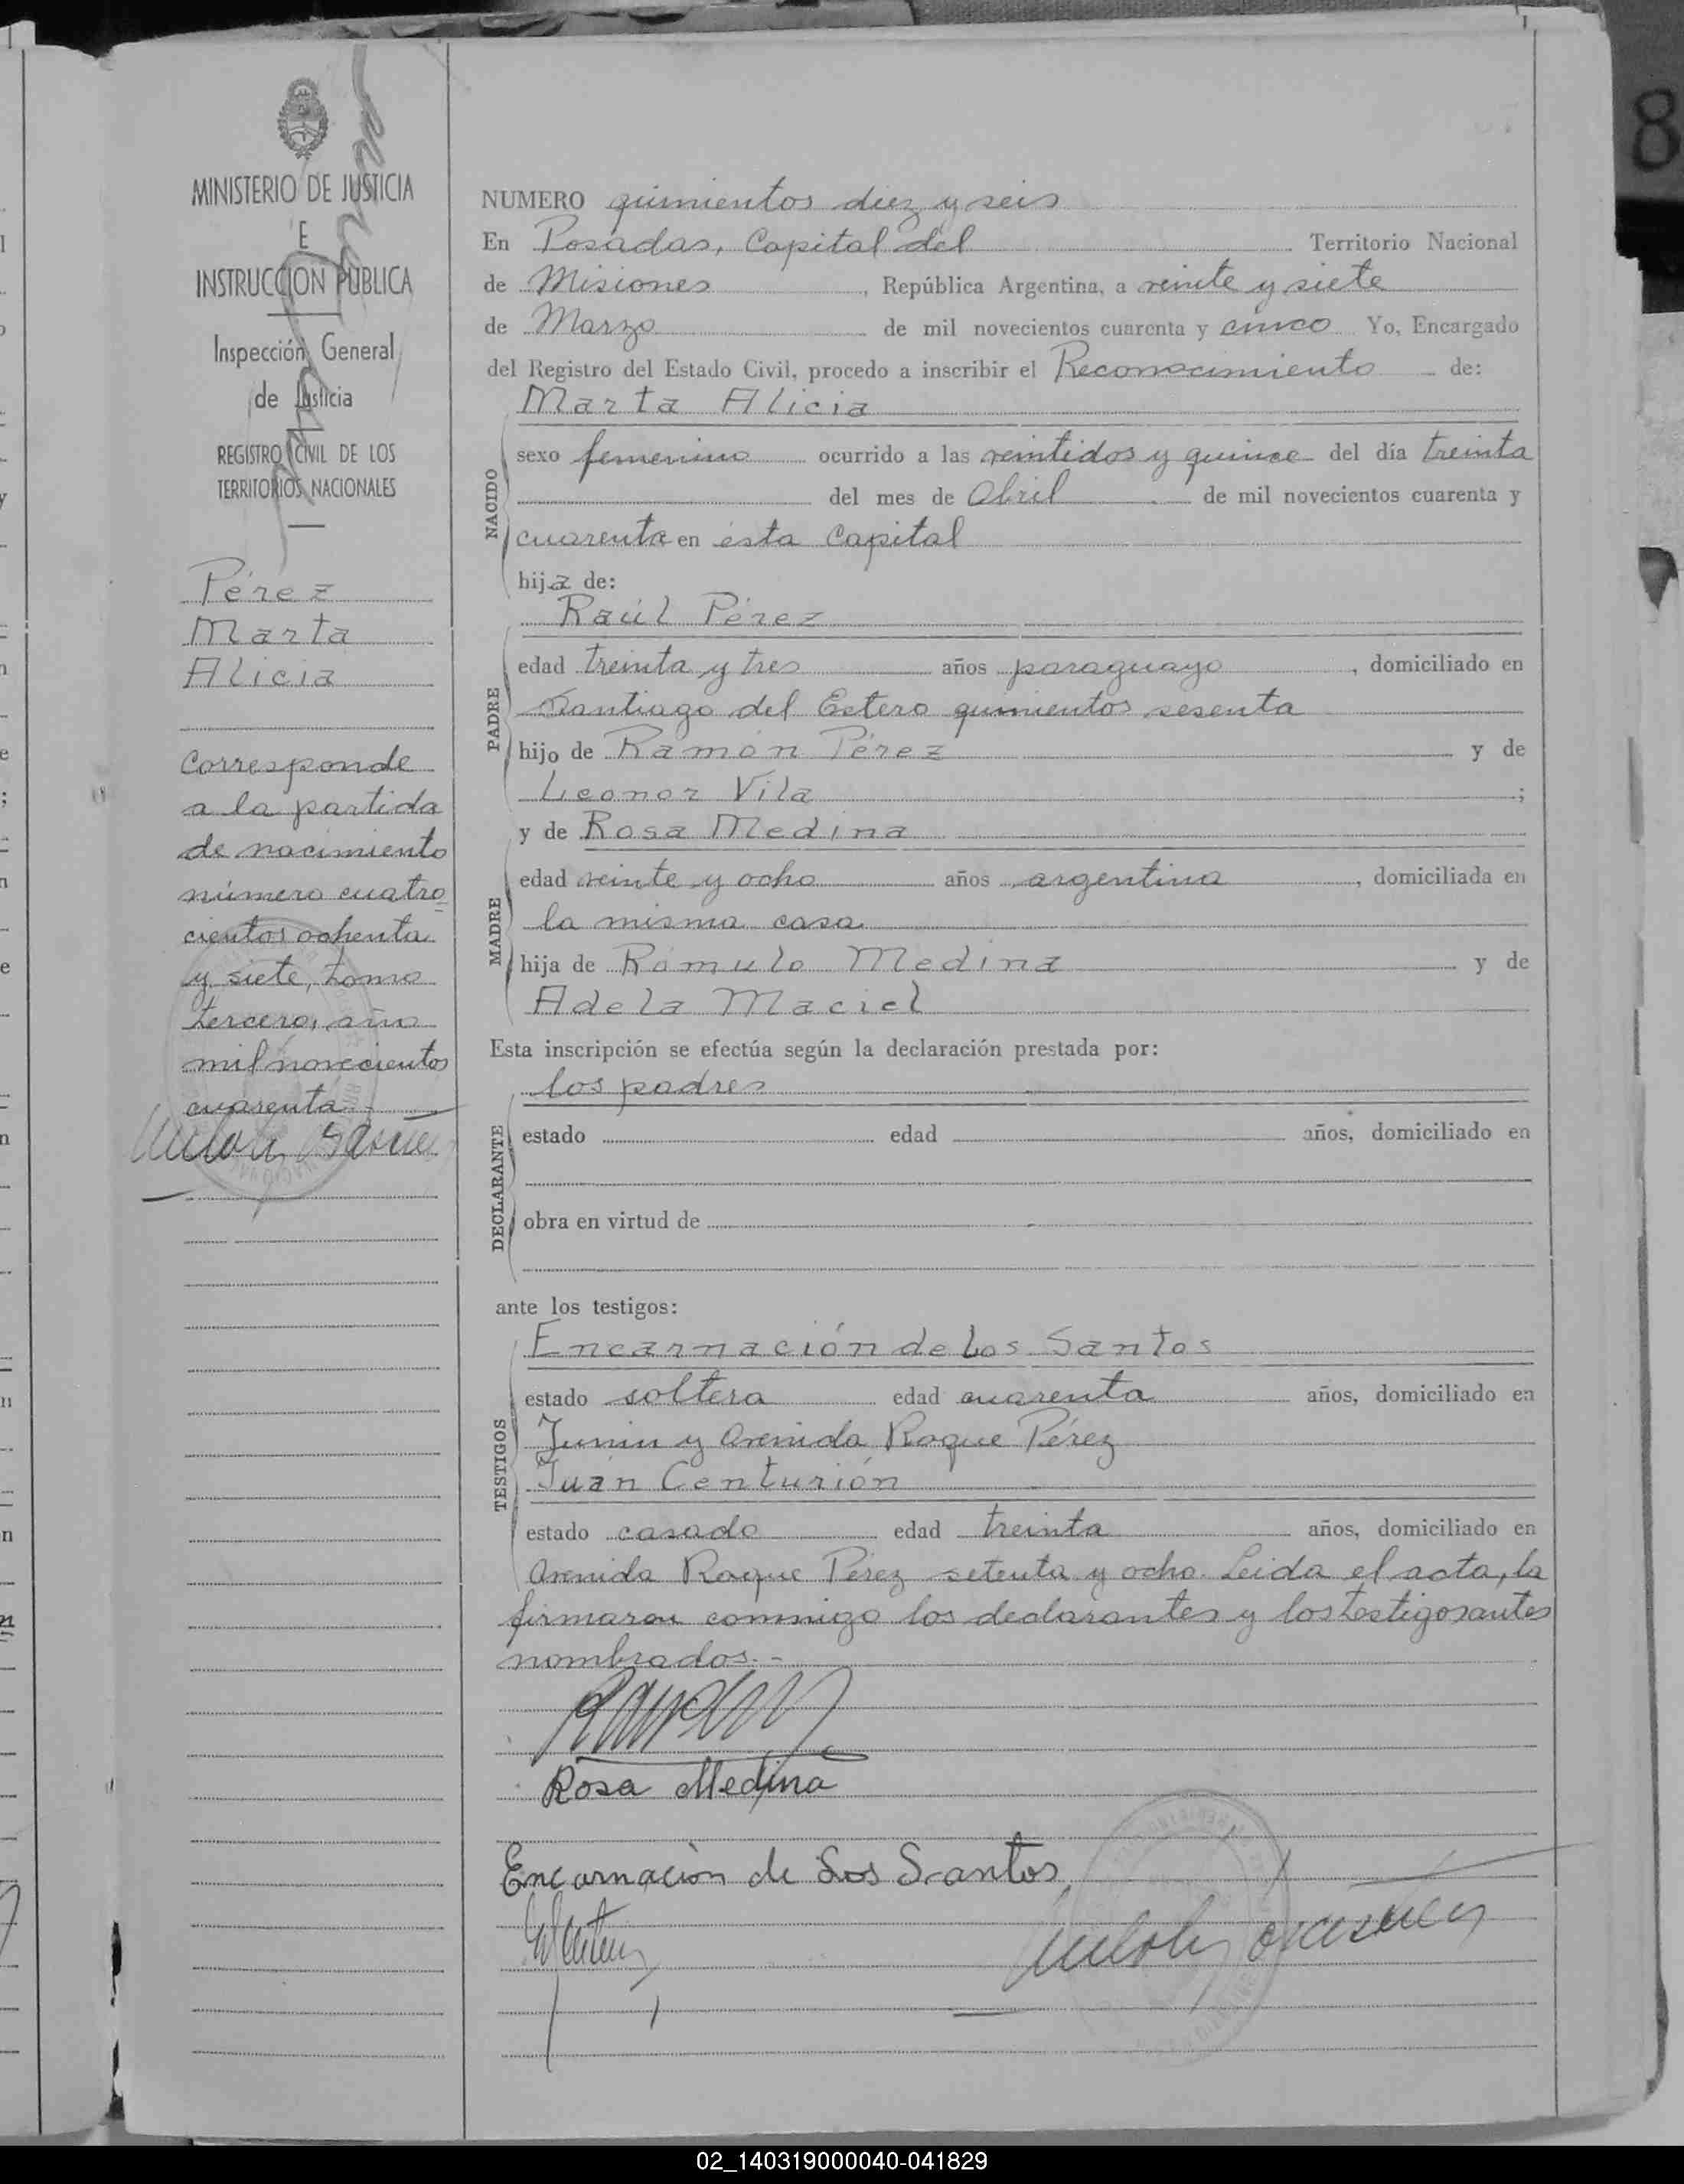 MINISTERIO DE JUSTICIA
E
INSTRUCCION PUBLICA
Inspección General
de Justicia
REGISTRO CIVIL DE LOS
TERRITORIOS NACIONALES
Pérez
Marta
Alicia
Corresponde
a la partida
de nacimiento
número cuatro
cientos ochenta
y siete, tomo
tercero, año
mil novecientos
cuarenta
NUMERO quinientos diez y seis
En Posadas, Capital del Territorio Nacional
de Misiones, República Argentina, a veinte y siete
de Marzo de mil novecientos cuarenta y cinco Yo, Encargado
del Registro del Estado Civil, procedo a inscribir el Reconocimiento de:
Marta Alicia
NACIDO
sexo femenino ocurrido a las veintidos y quince del día treinta
del mes de Abril de mil novecientos cuarenta y
cuarenta en ésta Capital
hija de:
Raúl Pérez
PADRE
edad treinta y tres años paraguayo, domiciliado en
Santiago del Estero quinientos sesenta
hijo de Ramón Pérez y de
Leonor Vila;
y de Rosa Medina
MADRE
edad veinte y ocho años argentina, domiciliada en
la misma casa
hija de Rómulo Medina y de
Adela Maciel
Esta inscripción se efectúa según la declaración prestada por:
los padres
DECLARANTE
estado edad años, domiciliado en
obra en virtud de
ante los testigos:
Encarnación de Los Santos
TESTIGOS
estado soltera edad cuarenta años, domiciliado en
Junin y Avenida Roque Pérez
Juan Centurión
estado casado edad treinta años, domiciliado en
Avenida Roque Pérez setenta y ocho. Leida el acta, la
firmaron conmigo los declarantes y los testigos antes
nombrados.-
Rosa Medina
Encarnaciòn de Los Santos
8
02_140319000040-041829